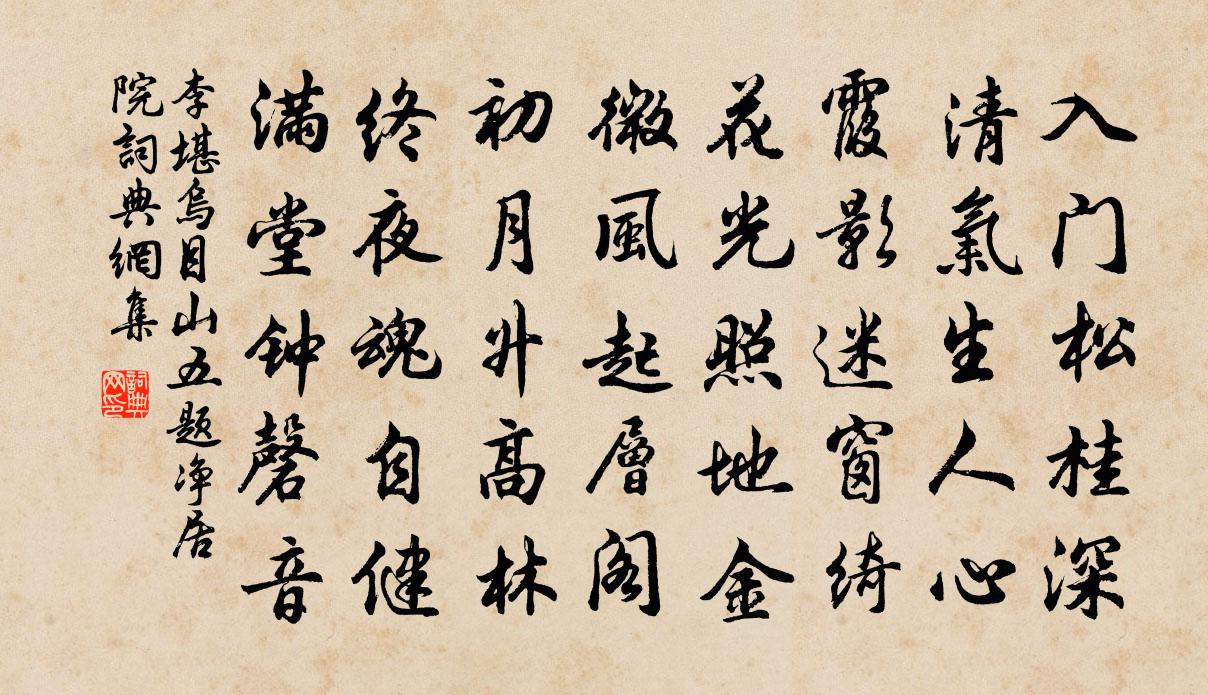 入門松桂深
清氣生人心
霞影迷窗綺
花光照地金
微風起層閣
初月升高林
終夜魂自健
滿堂钟磬音
李堪烏目山五题净居
院詞典網集
詞典
网印